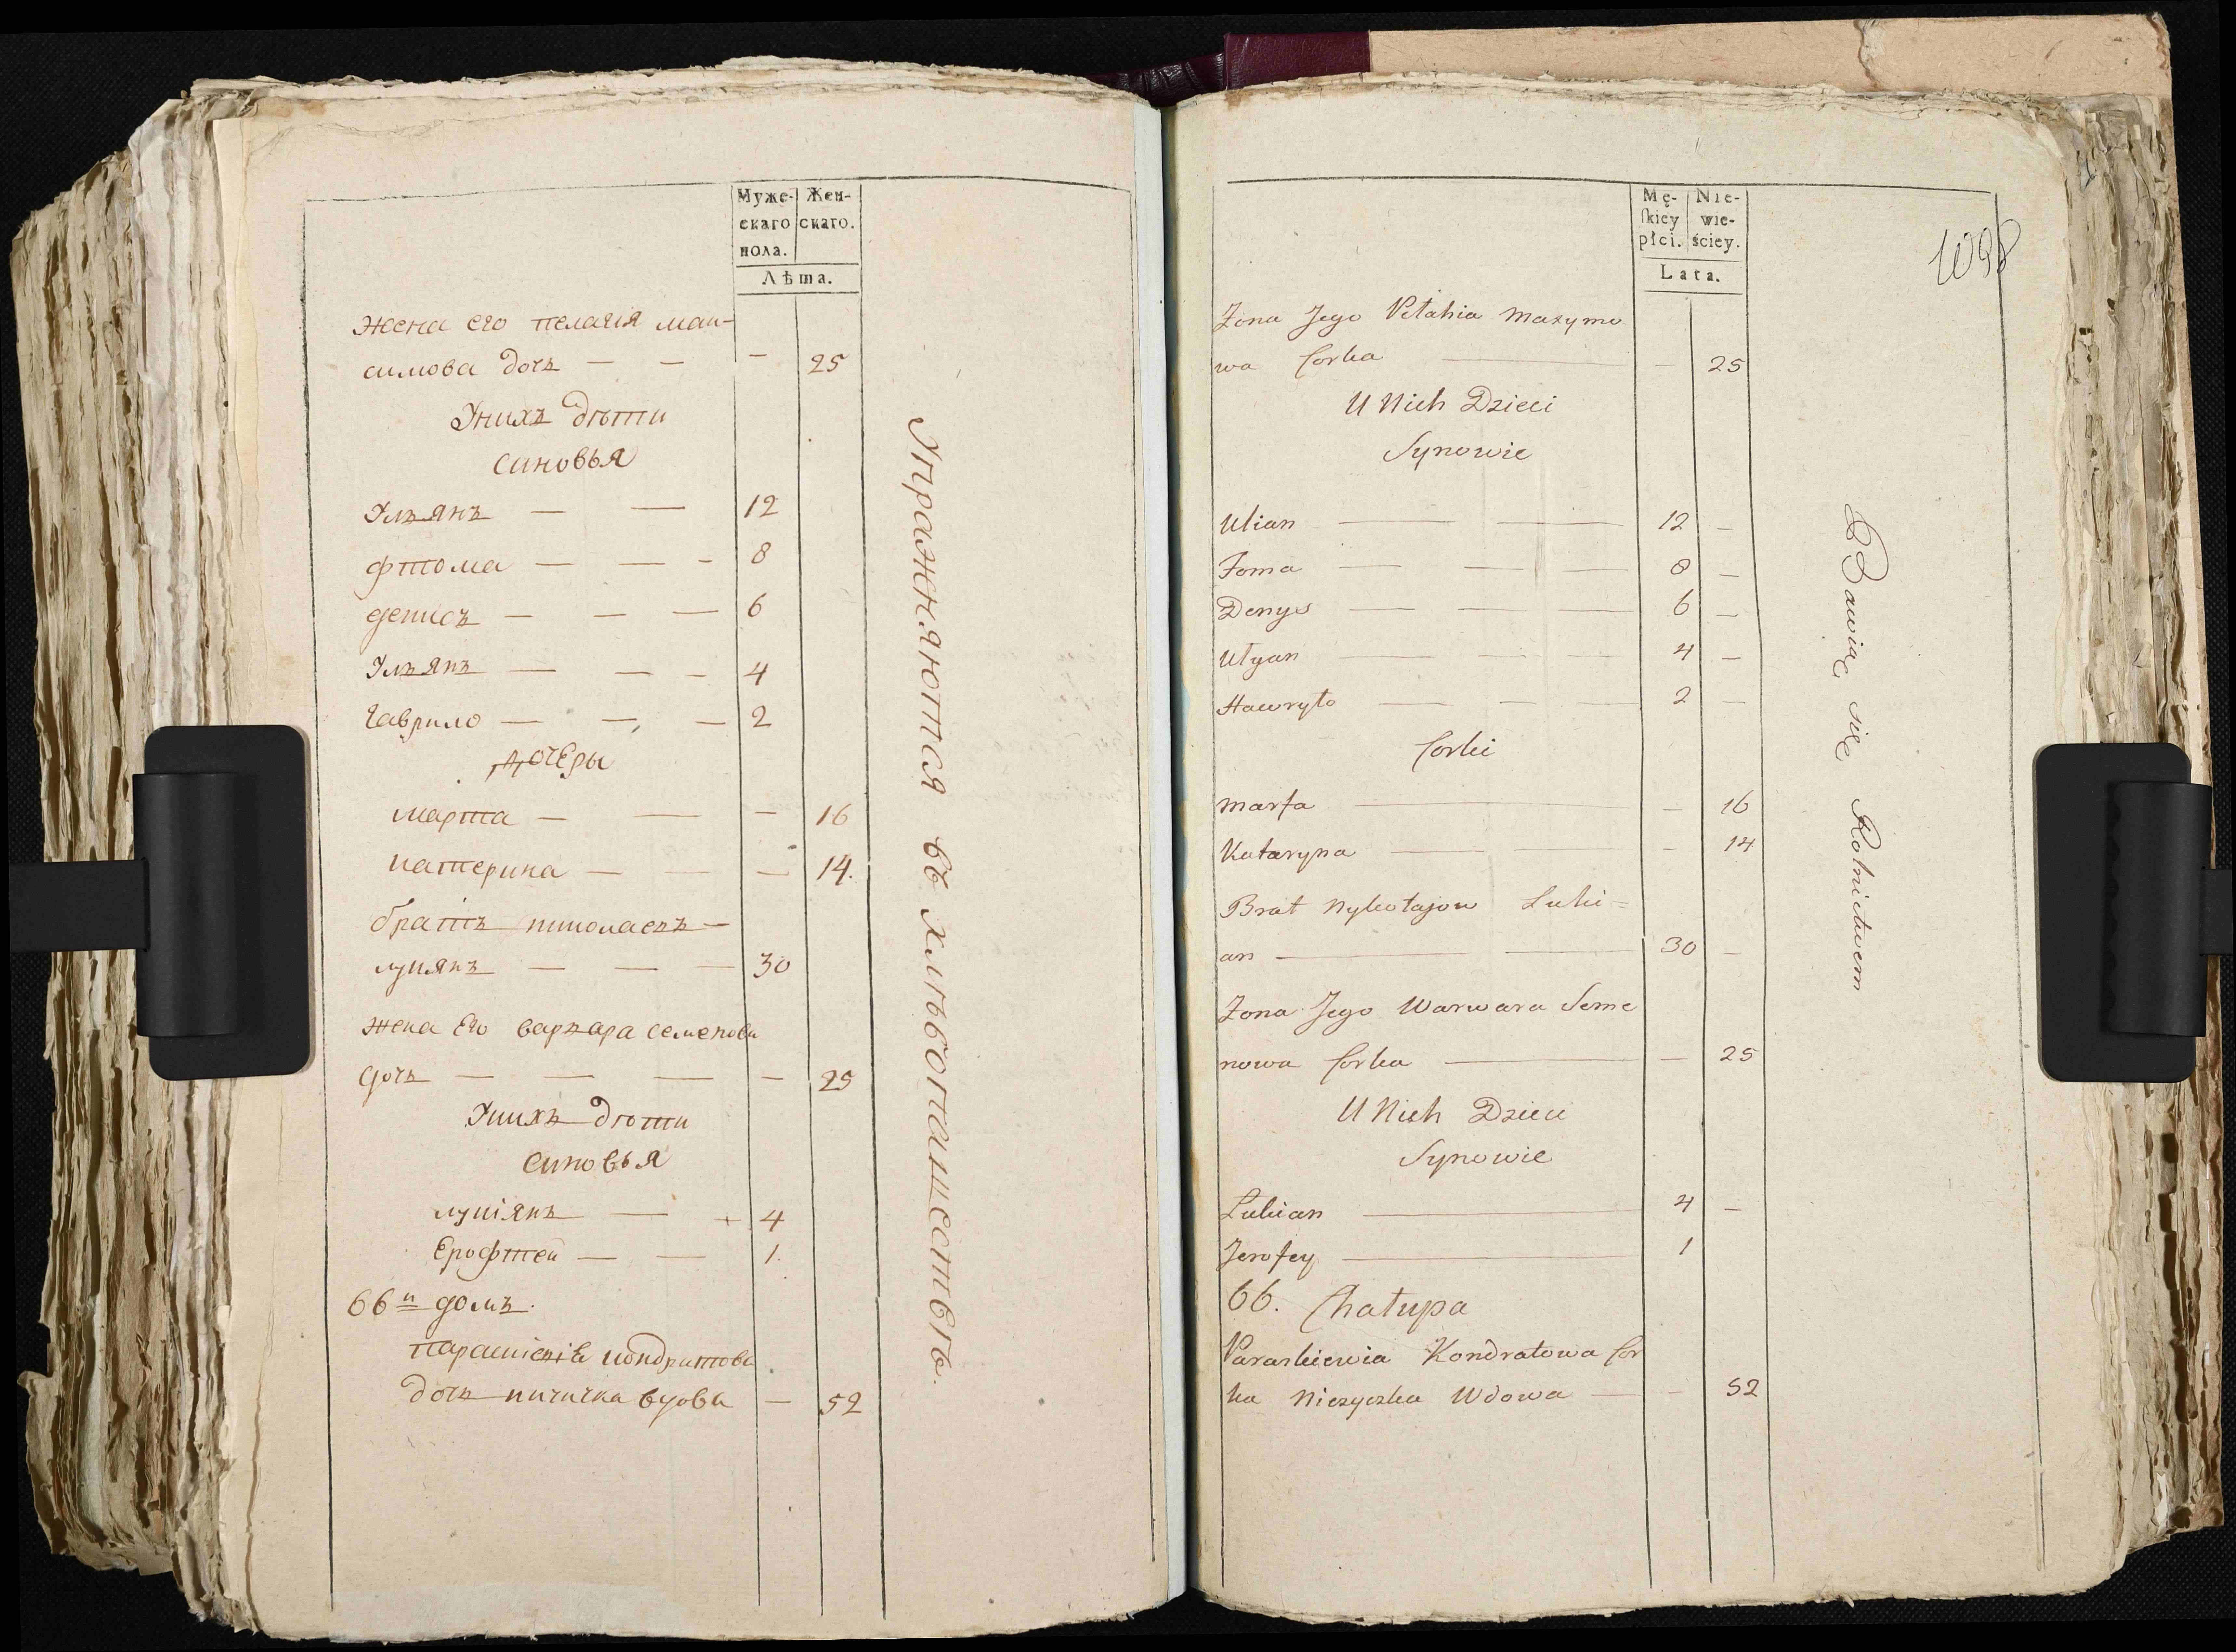 Муже-
скаго
пола.
Жен-
скаго.
Лѣта.
жена его пелагія мак-
симова дочъ — — — 25
Унихъ дѣти
синовья
Улъянъ — — 12
фтома — — - 8
денисъ — — — 6
Улъянъ — — - 4
гаврило — — — 2
дочеры
марта — — — 16
катерина — — — 14.
братъ николаевъ —
лукянъ — — — 30
жена его варвара семенова
дочъ — — — — 25
Унихъ дѣти
синовья
лукіянъ — 4
Ерофтей — — 1.
66й домъ.
параскіевія кондратова
дочъ ничичка вдова — 52
Упражняются въ хлѣбопашествѣ.
Mę-
ſkiey
płci.
Nie-
wie-
ściey.
Lata.
1098
Zona Jego Pełahia Maxymo
wa Corka — — 25
U Nich Dzieci
Synowie
Ulian — — 12 —
Foma — — — 8 —
Denys — — — 6 —
Ułyan — — — 4 —
Hawryło — — — 2 —
Corki
Marfa — — 16
Kataryna — — - 14
Brat Nykołajow Luki=
an — — 30 —
Zona Jego Warwara Seme
nowa Corka — — 25
U Nich Dzieci
Synowie
Lukian — 4 —
Jerofey — 1
66. Chałupa
Paraskiewia Kondratowa Cor
ka Niczyczka Wdowa — - 52
Bawią się Rolnictwem